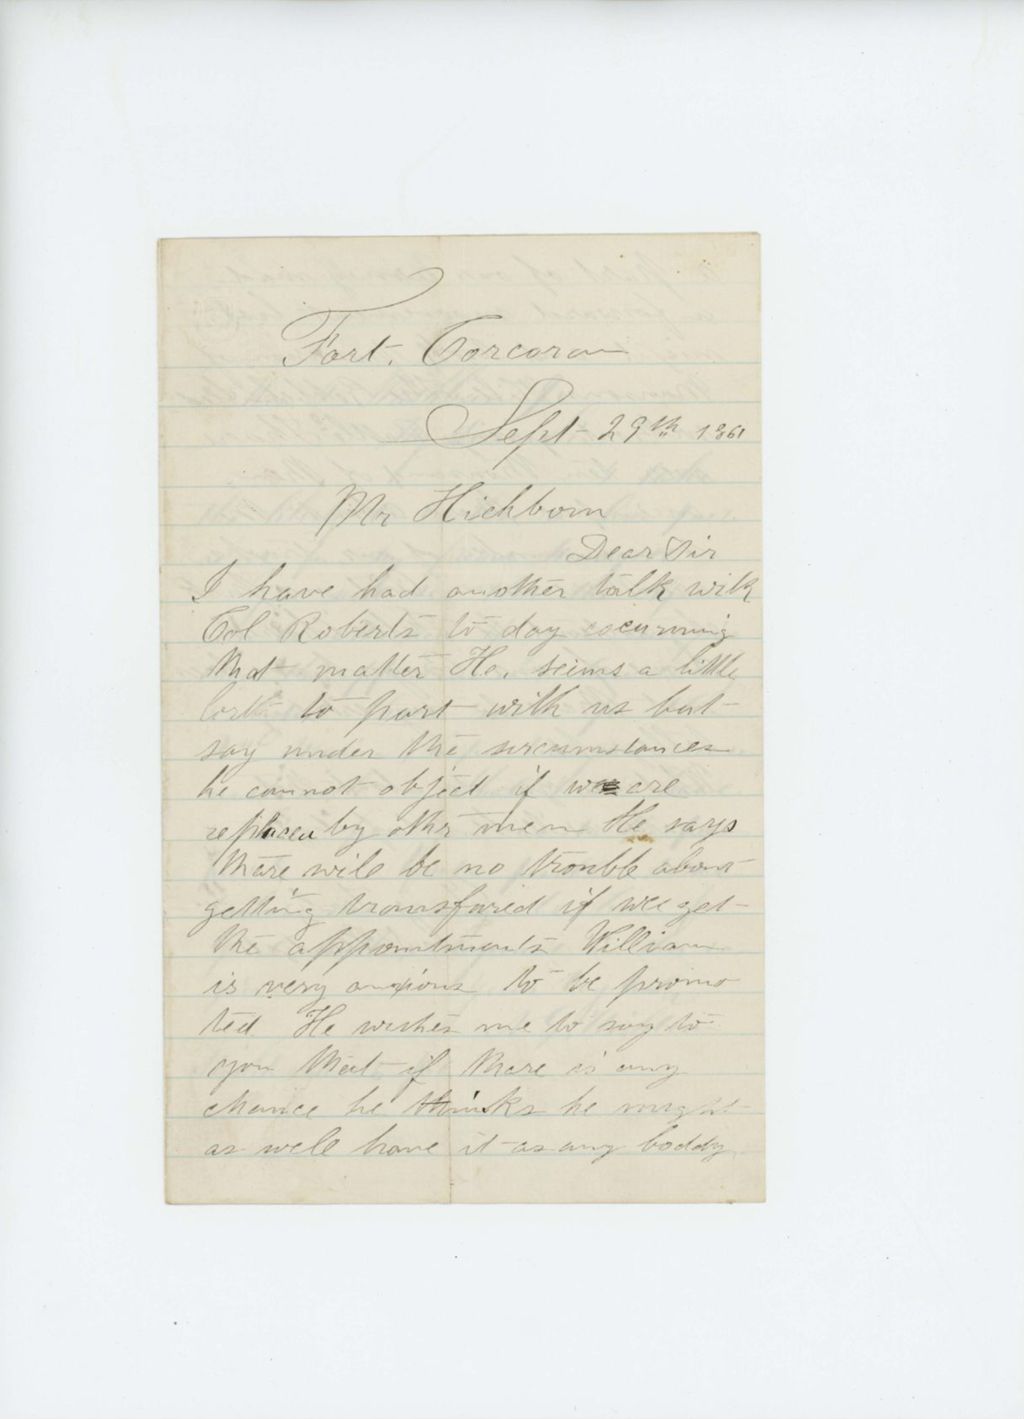 Fort. Corcoran
Sept- 29th 1861
Mr Hichborn
Dear Sir
I have had another talk with
Col Roberts to day cocurning
that matter He, seims a little
loth to part with us but
say under the sircumstances
he cannot object if we are
replaced by othr men He says
thare will be no trouble about
getting transfured if wee get
the appointments William
is very anxious to be promo
ted He wishes me to say to
you that if thare is any
chance he thinks he might
as well have it as any boddy